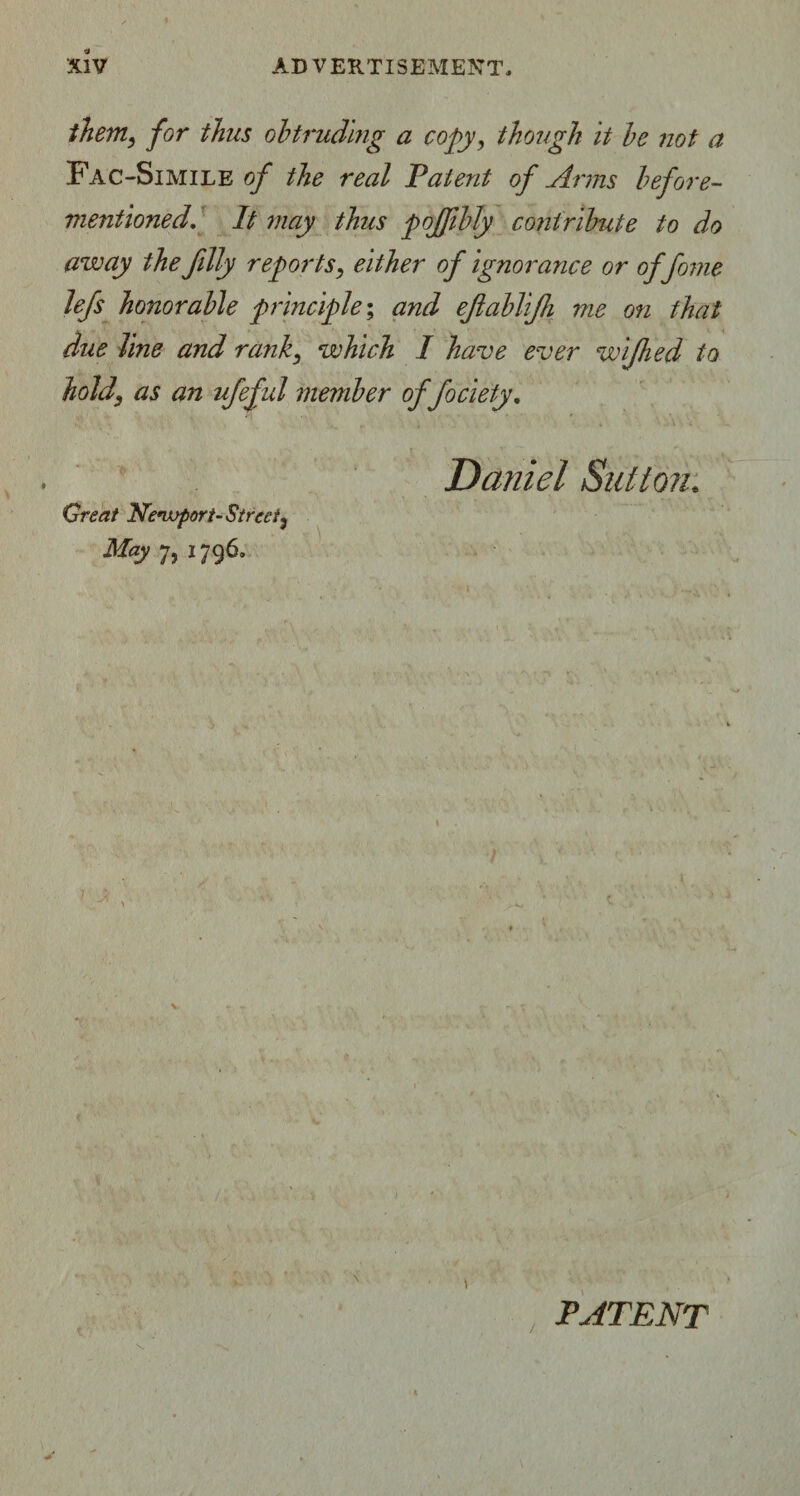 xiv ADVERTISEMENT.
them, for thus obtruding a copy, though it be not a
FAC-SIMILE of the real Patent of Arms before-
mentioned. It may thus poſſibly contribute to do
away the ſilly reports, either of ignorance or of ſome
leſs honorable principle; and eſtabliſh me on that
due line and rank, which I have ever wiſhed to
hold, as an uſeful member of ſociety.
Daniel Sutton.
Great Newport-Street,
May 7, 1796.
PATENT